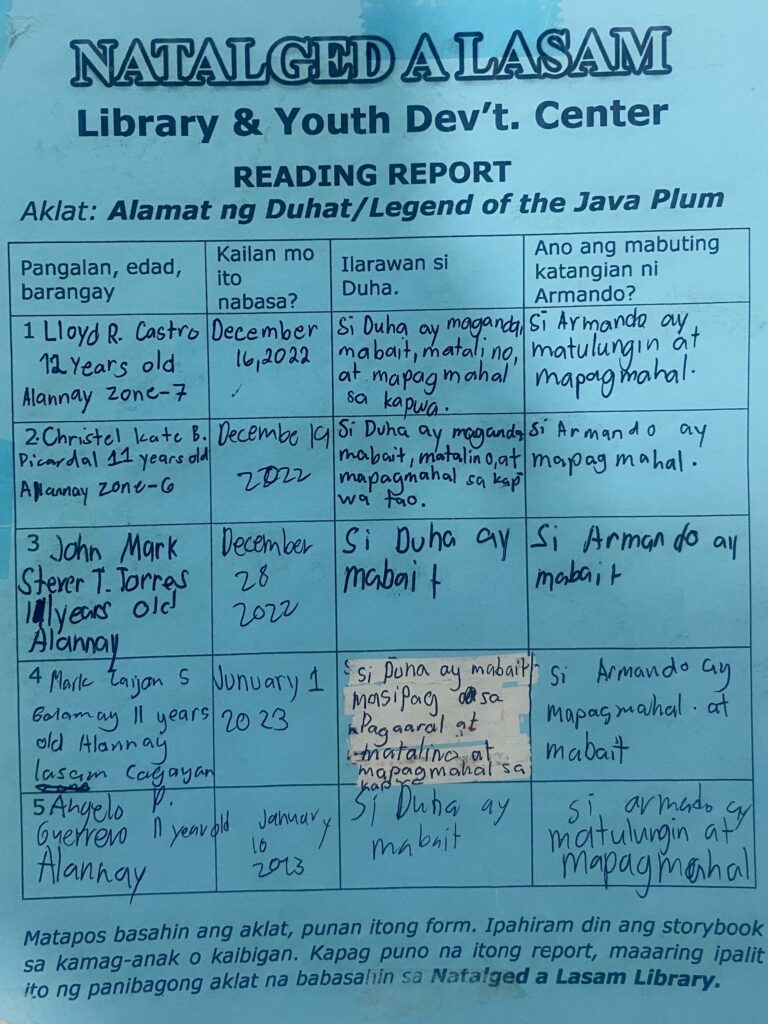 NATALGED A LASAM
Library & Youth Dev't. Center
READING REPORT
Aklat: Alamat ng Duhat/Legend of the Java Plum
Pangalan, edad,
barangay
Kailan mo
ito
nabasa?
Ilarawan si
Duha.
Ano ang mabuting
katangian ni
Armando?
1 Lloyd R. Castro
12 Years old
Alannay zone-7
December
16,2022
Si Duha ay maganda,
mabait, matalino,
at mapagmahal
sa kapwa.
Si Armando ay
matulungin at
mapagmahal.
2. Christel Kate B.
Picardal 11 years old
Alannay zone-6
December 19
2022
Si Duha ay maganda
mabait, matalino, at
mapagmahal sa kap
wa tao.
Si Armando ay
mapagmahal.
3 John Mark
Stever T. Torres
11 years old
Alannay
December
28
2022
Si Duha ay
mabait
Si Armando ay
mabait
4 Mark S
11 years
old Alannay
lasam Cagayan
Junuary 1
2023
Si Duha ay mabait
masipag sa
Pagaaral at
matalino at
mapagmahal sa
Si Armando ay
mapagmahal. at
mabait
5 Angelo P.
Guerrero 11 year old
Alannay
January
16
2023
Si Duha ay
mabait
si armado ay
matulungin at
mapagmahal
Matapos basahin ang aklat, punan itong form. Ipahiram din ang storybook
sa kamag-anak o kaibigan. Kapag puno na itong report, maaaring ipalit
ito ng panibagong aklat na babasahin sa Natalged a Lasam Library.